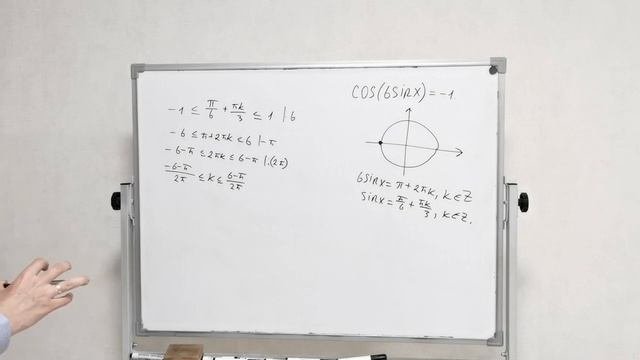 -1 ≤ π/6 + πk/3 ≤ 1 | 6
-6 ≤ π+2πk ≤ 6 |-π
-6-π ≤ 2πk ≤ 6-π |:(2π)
(-6-π)/2π ≤ k ≤ (6-π)/2π
COS(6sinx)=-1
6sinx = π+2πk, k∈Z
sinx = π/6 + πk/3, k∈Z.